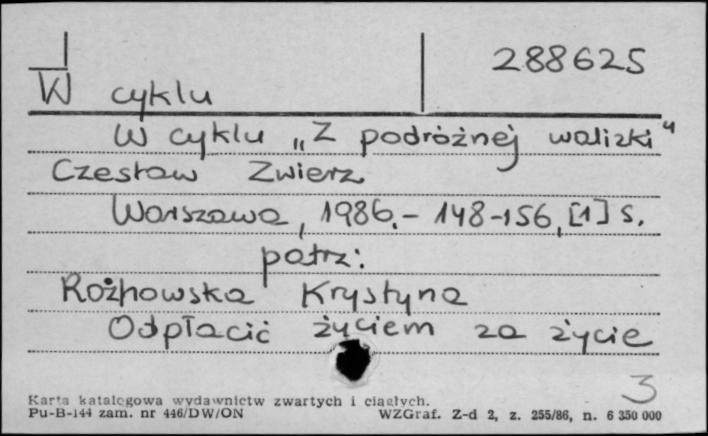 288625
W cyklu
W cyklu „Z podróżnej walizki"
Czesław Zwierz
Warszawa, 1986.- 148-156, [1] s.
patrz:
Rożnowska Krystyna
Odpłacić życiem za życie
3
Karta katalogowa wydawnictw zwartych i ciągłych.
Pu-B-144 zam. nr 446/DW/ON WZGraf. Z-d 2, z. 255/86, n. 6 350 000